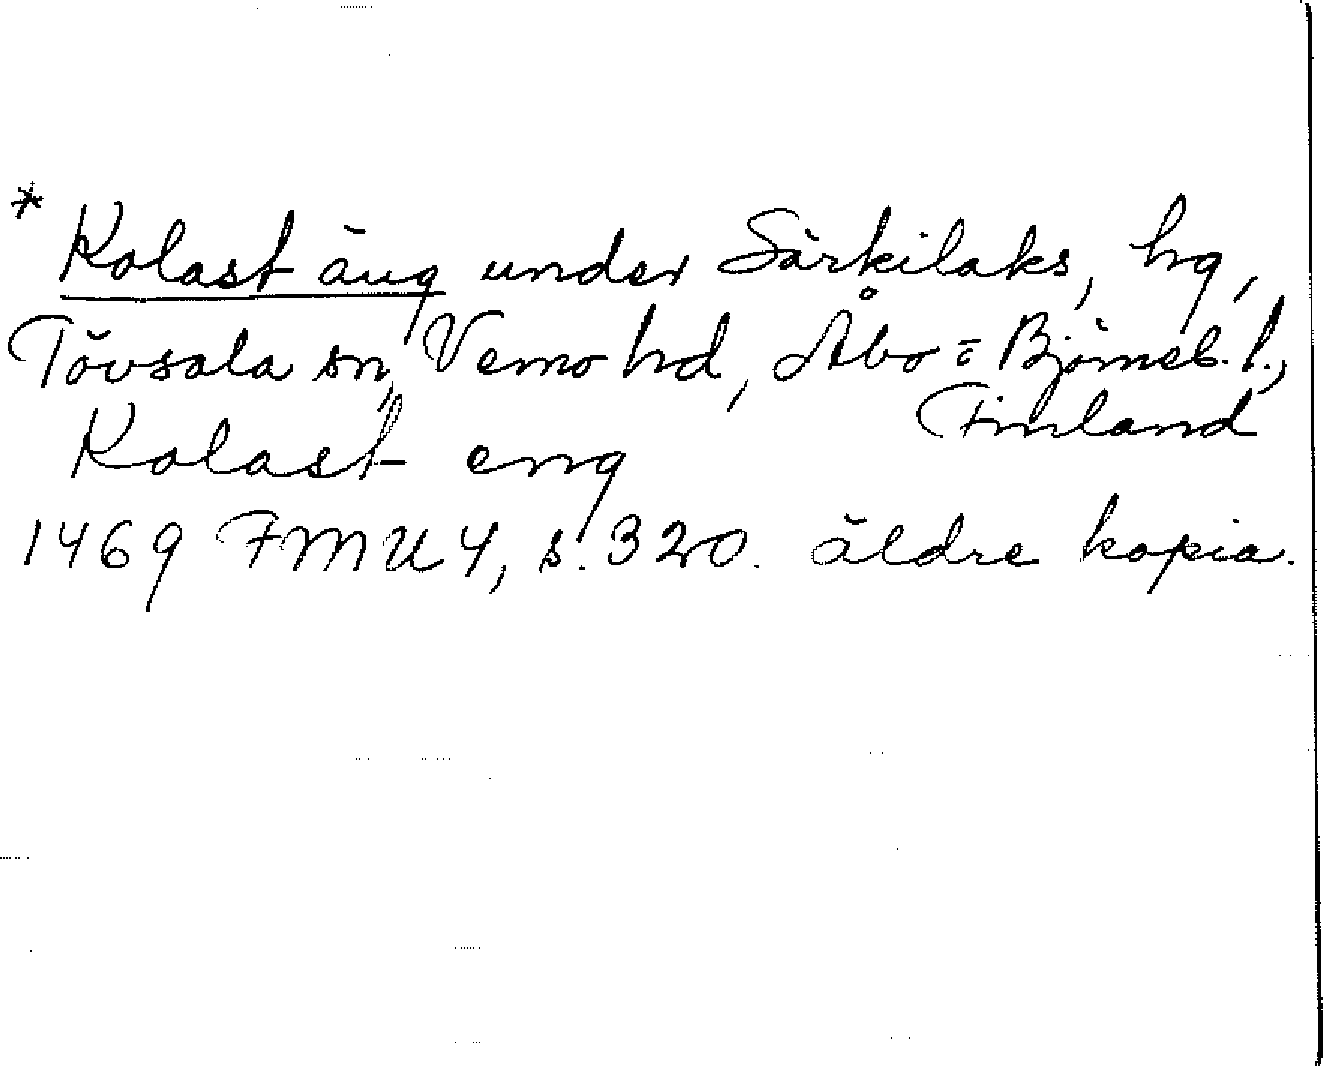 * Kolast äng under Särkilaks, hg,
Tövsala sn, Vemo hd, Åbo = Björneb. l.,
Finland
Kolast eng
1469 FMU 4, s. 320. äldre kopia.